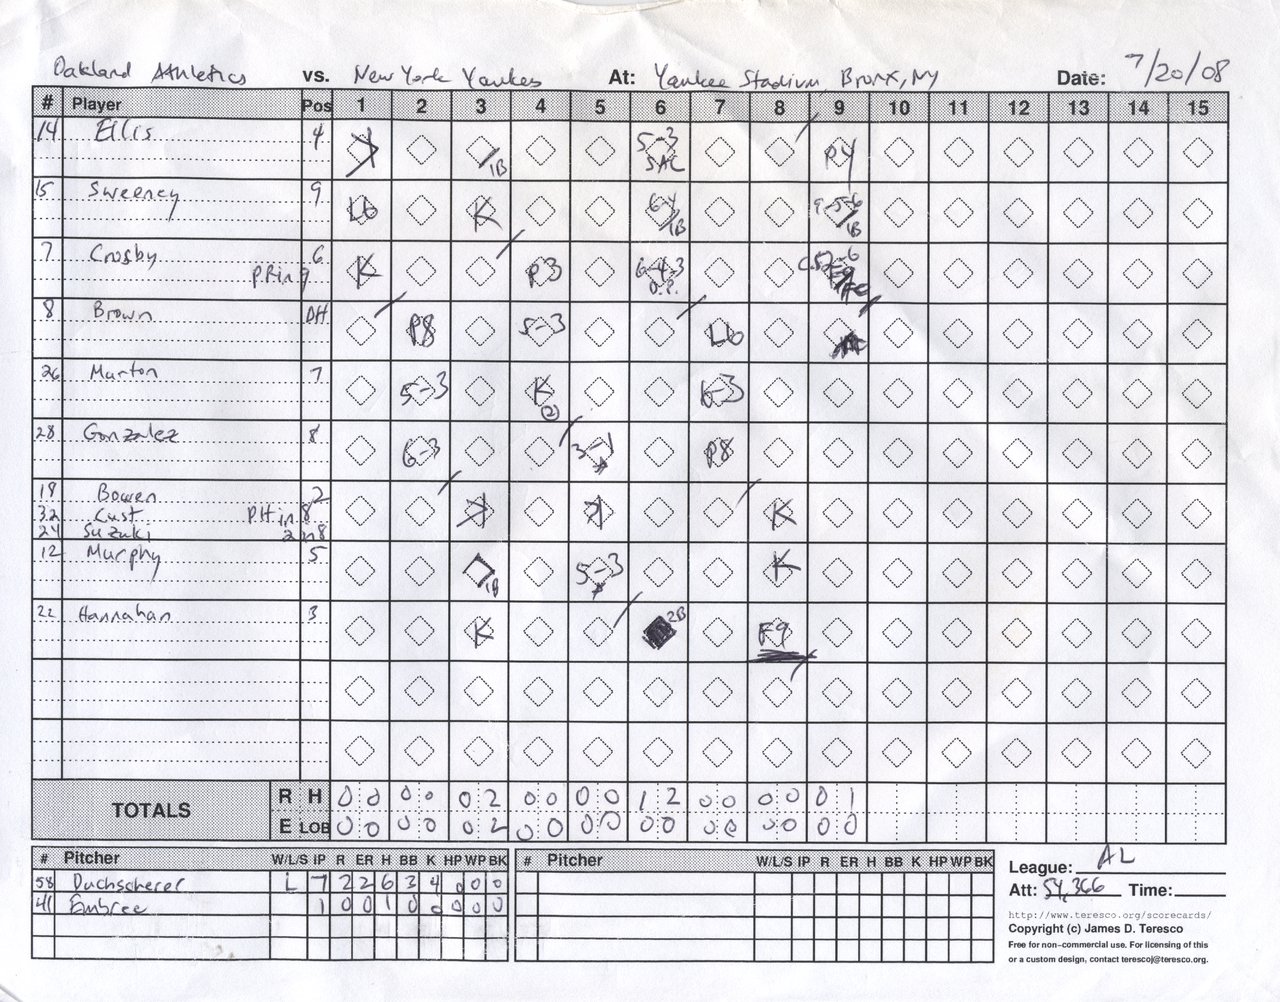 Oakland Athletics vs. New York Yankees At: Yankee Stadium, Bronx, NY Date: 7/20/08
# Player Pos 1 2 3 4 5 6 7 8 9 10 11 12 13 14 15
14 Ellis 4 1B 5-3 SAC P4
15 Sweeney 9 L6 K 6-4 1B 9-5-6 1B
7 Crosby 6 K P3 6-4-3 D.P.
P.R in 9
8 Brown DH P8 5-3 L6
26 Murton 7 5-3 K (2) 6-3
28 Gonzalez 8 6-3 3-1 P8
19 Bowen 2 K
32 Cust P.H in 8
24 Suzuki 2 in 8
12 Murphy 5 1B 5-3 K
22 Hannahan 3 K 2B F9
TOTALS R H 0 0 0 0 0 2 0 0 0 0 1 2 0 0 0 0 0 1
E LOB 0 0 0 0 0 2 0 0 0 0 0 0 0 0 0 0 0 0
# Pitcher W/L/S IP R ER H BB K HP WP BK # Pitcher W/L/S IP R ER H BB K HP WP BK
58 Duchscherer L 7 2 2 6 3 4 0 0 0
41 Embree 1 0 0 1 0 0 0 0 0
League: AL
Att: 54,366 Time:
http://www.teresco.org/scorecards/
Copyright (c) James D. Teresco
Free for non-commercial use. For licensing of this
or a custom design, contact terescoj@teresco.org.